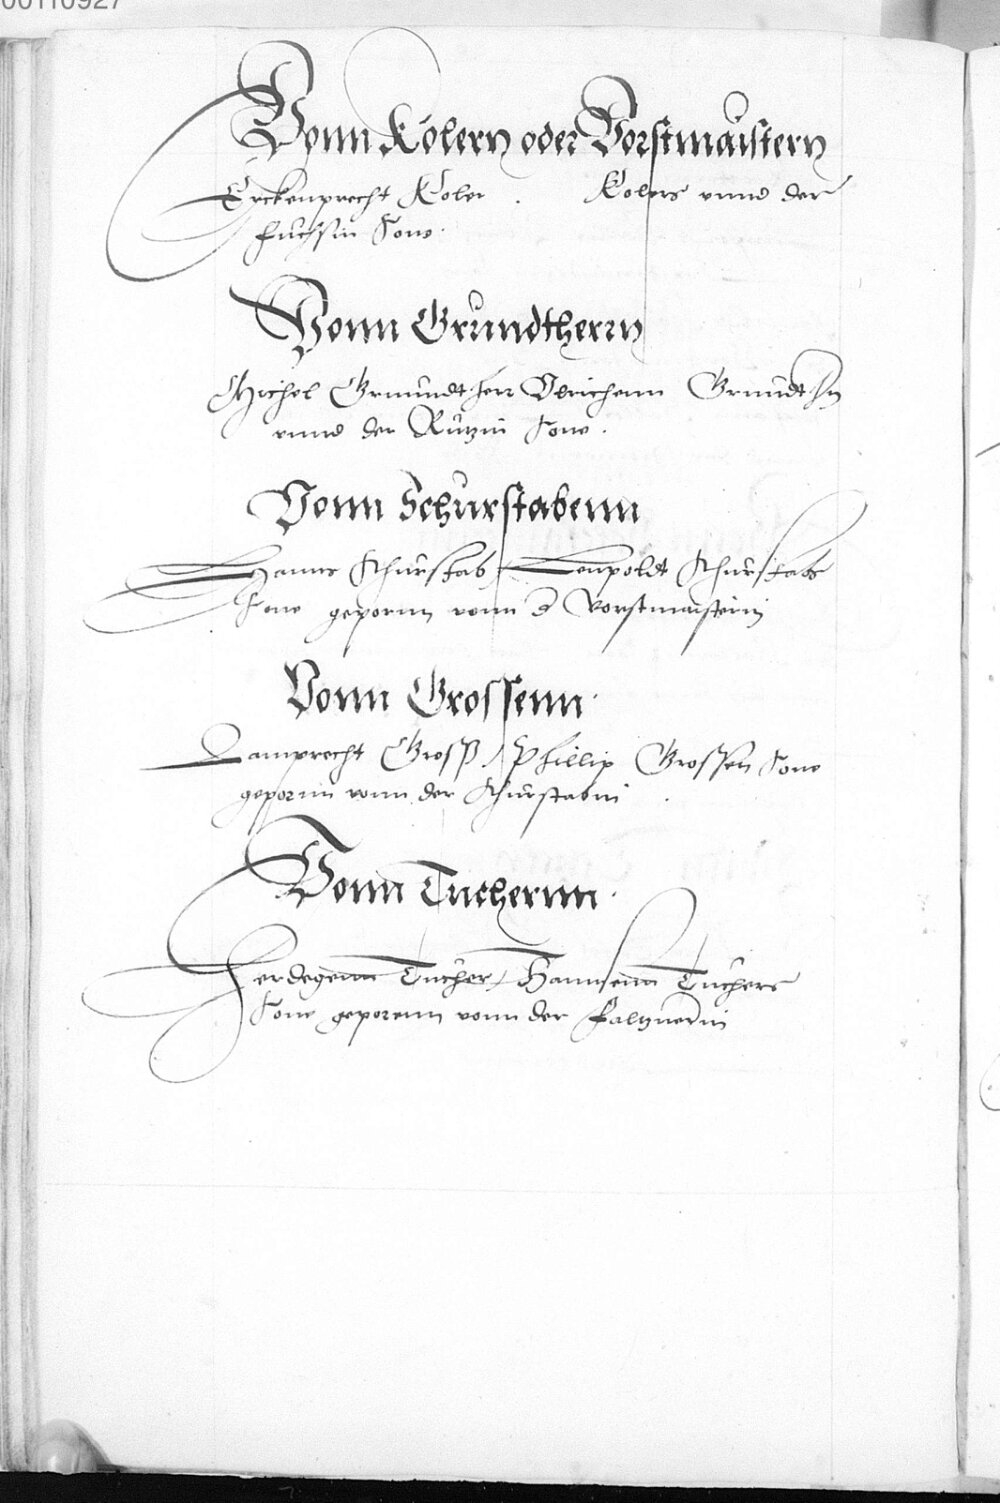 00110927
Vonn Kolern oder Vorstmaistern
Erckenprecht Koler . Kolers vnnd der
Fuchsin Sone.
Vonn Grundtherrn
Michel Grundtherr Vlrichenn Grundthrn
vnnd der Rützin Sone.
Vonn Schürstabenn
Hanns Schürstab Leupoldt Schürstabs
Sone gepornn vonn d Vorstmaisterin
Vonn Grossenn.
Lamprecht Gross, Phillip Grossen Sone
gepornn vonn der Schürstabin
Vonn Tuchernn.
Herdegenn Tucher, Hannsenn Tuchers
Sone geporenn vonn der Faltznerin